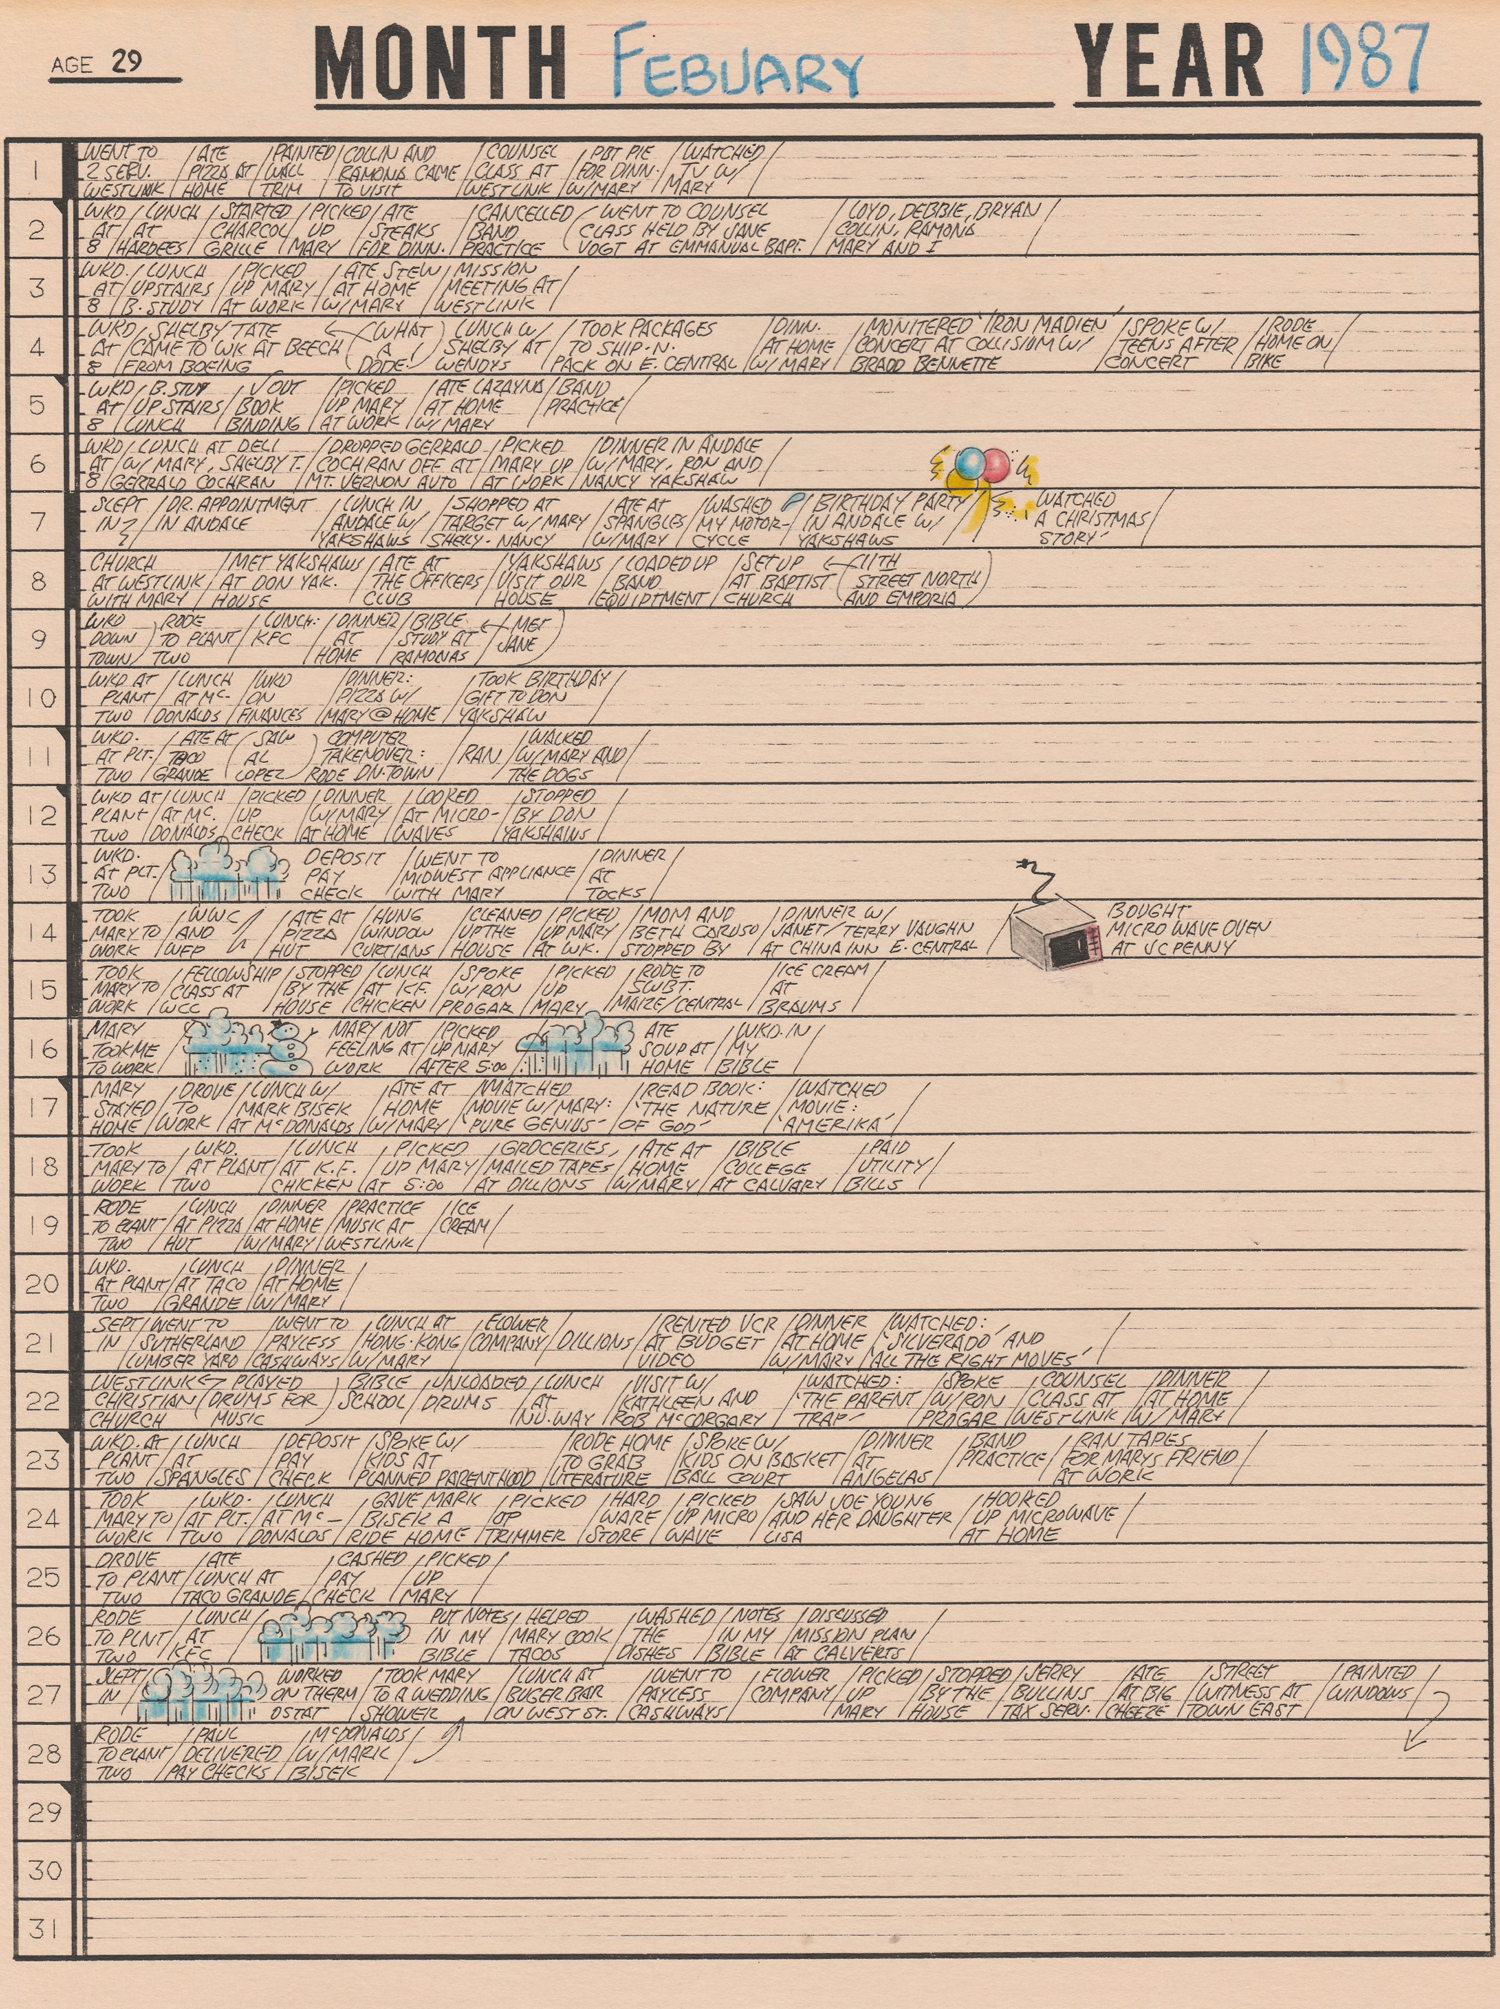 AGE 29 MONTH FEBUARY YEAR 1987
1
WENT TO / ATE / PAINTED / COLLIN AND / COUNSEL / POT PIE / WATCHED /
2 SERV. / PIZZA AT / WALL / RAMONA CAME / CLASS AT / FOR DINN. / TV W/
WESTLINK / HOME / TRIM / TO VISIT / WESTLINK / W/MARY / MARY
2
WKD / LUNCH / STARTED / PICKED / ATE / CANCELLED / WENT TO COUNSEL / LOYD, DEBBIE, BRYAN /
AT / AT / CHARCOL / UP / STEAKS / BAND / CLASS HELD BY JANE / COLLIN, RAMONA
8 / HARDEES / GRILLE / MARY / FOR DINN. / PRACTICE / VOGT AT EMMANUAL BAPT. / MARY AND I
3
WKD. / LUNCH / PICKED / ATE STEW / MISSION /
AT / UPSTAIRS / UP MARY / AT HOME / MEETING AT
8 / B. STUDY / AT WORK / W/MARY / WESTLINK
4
WKD / SHELBY TATE (WHAT) LUNCH W/ / TOOK PACKAGES / DINN. / MONITERED 'IRON MADIEN' / SPOKE W/ / RODE /
AT / CAME TO WK AT BEECH (A !) SHELBY AT / TO SHIP-N- / AT HOME / CONCERT AT COLLISIUM W/ / TEENS AFTER / HOME ON
8 / FROM BOEING (DODE) WENDYS / PACK ON E. CENTRAL / W/ MARY / BRADD BENNETTE / CONCERT / BIKE
5
WKD / B. STUY / V OUT / PICKED / ATE LAZAYNA / BAND /
AT / UP STAIRS / BOOK / UP MARY / AT HOME / PRACTICE
8 / LUNCH / BINDING / AT WORK / W/ MARY
6
WKD / LUNCH AT DELI / DROPPED GERRALD / PICKED / DINNER IN ANDALE /
AT / W/ MARY, SHELBY T. / COCHRAN OFF AT / MARY UP / W/ MARY, RON AND
8 / GERRALD COCHRAN / MT. VERNON AUTO / AT WORK / NANCY YAKSHAW
7
SLEPT / DR. APPOINTMENT / LUNCH IN / SHOPPED AT / ATE AT / WASHED / BIRTHDAY PARTY / WATCHED /
IN / IN ANDALE / ANDALE W/ / TARGET W/ MARY / SPANGLES / MY MOTOR- / IN ANDALE W/ / 'A CHRISTMAS
YAKSHAWS / SHELY-NANCY / W/MARY / CYCLE / YAKSHAWS / STORY'
8
CHURCH / MET YAKSHAWS / ATE AT / YAKSHAWS / LOADED UP / SET UP (11TH)
AT WESTLINK / AT DON YAK. / THE OFFICERS / VISIT OUR / BAND / AT BAPTIST (STREET NORTH)
WITH MARY / HOUSE / CLUB / HOUSE / EQUIPTMENT / CHURCH (AND EMPORIA)
9
WKD / RODE / LUNCH: / DINNER / BIBLE (MET)
DOWN / TO PLANT / KFC / AT / STUDY AT (JANE)
TOWN / TWO / HOME / RAMONAS
10
WKD AT / LUNCH / WKD / DINNER: / TOOK BIRTHDAY /
PLANT / AT MC- / ON / PIZZA W/ / GIFT TO DON
TWO / DONALDS / FINANCES / MARY @ HOME / YAKSHAW
11
WKD. / ATE AT (SAW) COMPUTER / RAN / WALKED /
AT PLT. / TACO (AL) TAKENOVER: / W/MARY AND
TWO / GRANDE (LOPEZ) RODE DN-TOWN / THE DOGS
12
WKD AT / LUNCH / PICKED / DINNER / LOOKED / STOPPED /
PLANT / AT MC. / UP / W/MARY / AT MICRO- / BY DON
TWO / DONALDS / CHECK / AT HOME / WAVES / YAKSHAWS
13
WKD. / DEPOSIT / WENT TO / DINNER /
AT PLT. / PAY / MIDWEST APPLIANCE / AT
TWO / CHECK / WITH MARY / TOCKS
14
TOOK / WWC / ATE AT / HUNG / CLEANED / PICKED / MOM AND / DINNER W/ / BOUGHT
MARY TO / AND / PIZZA / WINDOW / UP THE / UP MARY / BETH CARUSO / JANET / TERRY VAUGHN / MICRO WAVE OVEN
WORK / WEP / HUT / CURTIANS / HOUSE / AT WK. / STOPPED BY / AT CHINA INN E. CENTRAL / AT JC PENNY
15
TOOK / FELLOWSHIP / STOPPED / LUNCH / SPOKE / PICKED / RODE TO / ICE CREAM /
MARY TO / CLASS AT / BY THE / AT K.F. / W/ RON / UP / SWBT. / AT
WORK / WCC / HOUSE / CHICKEN / PROGAR / MARY / MAIZE/CENTRAL / BRAUMS
16
MARY / MARY NOT / PICKED / ATE / WKD. IN /
TOOK ME / FEELING AT / UP MARY / SOUP AT / MY
TO WORK / WORK / AFTER 5:00 / HOME / BIBLE
17
MARY / DROVE / LUNCH W/ / ATE AT / WATCHED / READ BOOK: / WATCHED /
STAYED / TO / MARK BISEK / HOME / MOVIE W/MARY: / 'THE NATURE / MOVIE:
HOME / WORK / AT MCDONALDS / W/MARY / 'PURE GENIUS' / OF GOD' / 'AMERIKA'
18
TOOK / WKD. / LUNCH / PICKED / GROCERIES, / ATE AT / BIBLE / PAID /
MARY TO / AT PLANT / AT K.F. / UP MARY / MAILED TAPES / HOME / COLLEGE / UTILITY
WORK / TWO / CHICKEN / AT 5:00 / AT DILLIONS / W/MARY / AT CALVARY / BILLS
19
RODE / LUNCH / DINNER / PRACTICE / ICE /
TO PLANT / AT PIZZA / AT HOME / MUSIC AT / CREAM
TWO / HUT / W/MARY / WESTLINK
20
WKD. / LUNCH / DINNER /
AT PLANT / AT TACO / AT HOME
TWO / GRANDE / W/MARY
21
SEPT / WENT TO / WENT TO / LUNCH AT / FLOWER / RENTED VCR / DINNER / WATCHED: /
IN / SUTHERLAND / PAYLESS / HONG-KONG / COMPANY / DILLIONS / AT BUDGET / AT HOME / 'SILVERADO' AND
LUMBER YARD / CASHWAYS / W/MARY / VIDEO / W/MARY / 'ALL THE RIGHT MOVES'
22
WESTLINK / PLAYED / BIBLE / UNLOADED / LUNCH / VISIT W/ / WATCHED: / SPOKE / COUNSEL / DINNER /
CHRISTIAN / DRUMS FOR / SCHOOL / DRUMS / AT / KATHLEEN AND / 'THE PARENT / W/RON / CLASS AT / AT HOME
CHURCH / MUSIC / NU-WAY / ROB MCCORGARY / TRAP' / PROGAR / WESTLINK / W/ MARY
23
WKD. AT / LUNCH / DEPOSIT / SPOKE W/ / RODE HOME / SPOKE W/ / DINNER / BAND / RAN TAPES /
PLANT / AT / PAY / KIDS AT / TO GRAB / KIDS ON BASKET / AT / PRACTICE / FOR MARYS FRIEND
TWO / SPANGLES / CHECK / PLANNED PARENTHOOD / LITERATURE / BALL COURT / ANGELAS / AT WORK
24
TOOK / WKD. / LUNCH / GAVE MARK / PICKED / HARD / PICKED / SAW JOE YOUNG / HOOKED /
MARY TO / AT PLT. / AT MC- / BISEK A / UP / WARE / UP MICRO / AND HER DAUGHTER / UP MICROWAVE
WORK / TWO / DONALDS / RIDE HOME / TRIMMER / STORE / WAVE / LISA / AT HOME
25
DROVE / ATE / CASHED / PICKED /
TO PLANT / LUNCH AT / PAY / UP
TWO / TACO GRANDE / CHECK / MARY
26
RODE / LUNCH / PUT NOTES / HELPED / WASHED / NOTES / DISCUSSED /
TO PLNT / AT / IN MY / MARY COOK / THE / IN MY / MISSION PLAN
TWO / KFC / BIBLE / TACOS / DISHES / BIBLE / AT CALVERTS
27
SLEPT / WORKED / TOOK MARY / LUNCH AT / WENT TO / FLOWER / PICKED / STOPPED / JERRY / ATE / STREET / PAINTED /
IN / ON THERM / TO A WEDDING / BUGER BAR / PAYLESS / COMPANY / UP / BY THE / BULLINS / AT BIG / WITNESS AT / WINDOWS
OSTAT / SHOWER / ON WEST ST. / CASHWAYS / MARY / HOUSE / TAX SERV. / CHEEZE / TOWN EAST
28
RODE / PAUL / MCDONALDS /
TO PLANT / DELIVERED / W/ MARK
TWO / PAY CHECKS / BISEK
29
30
31